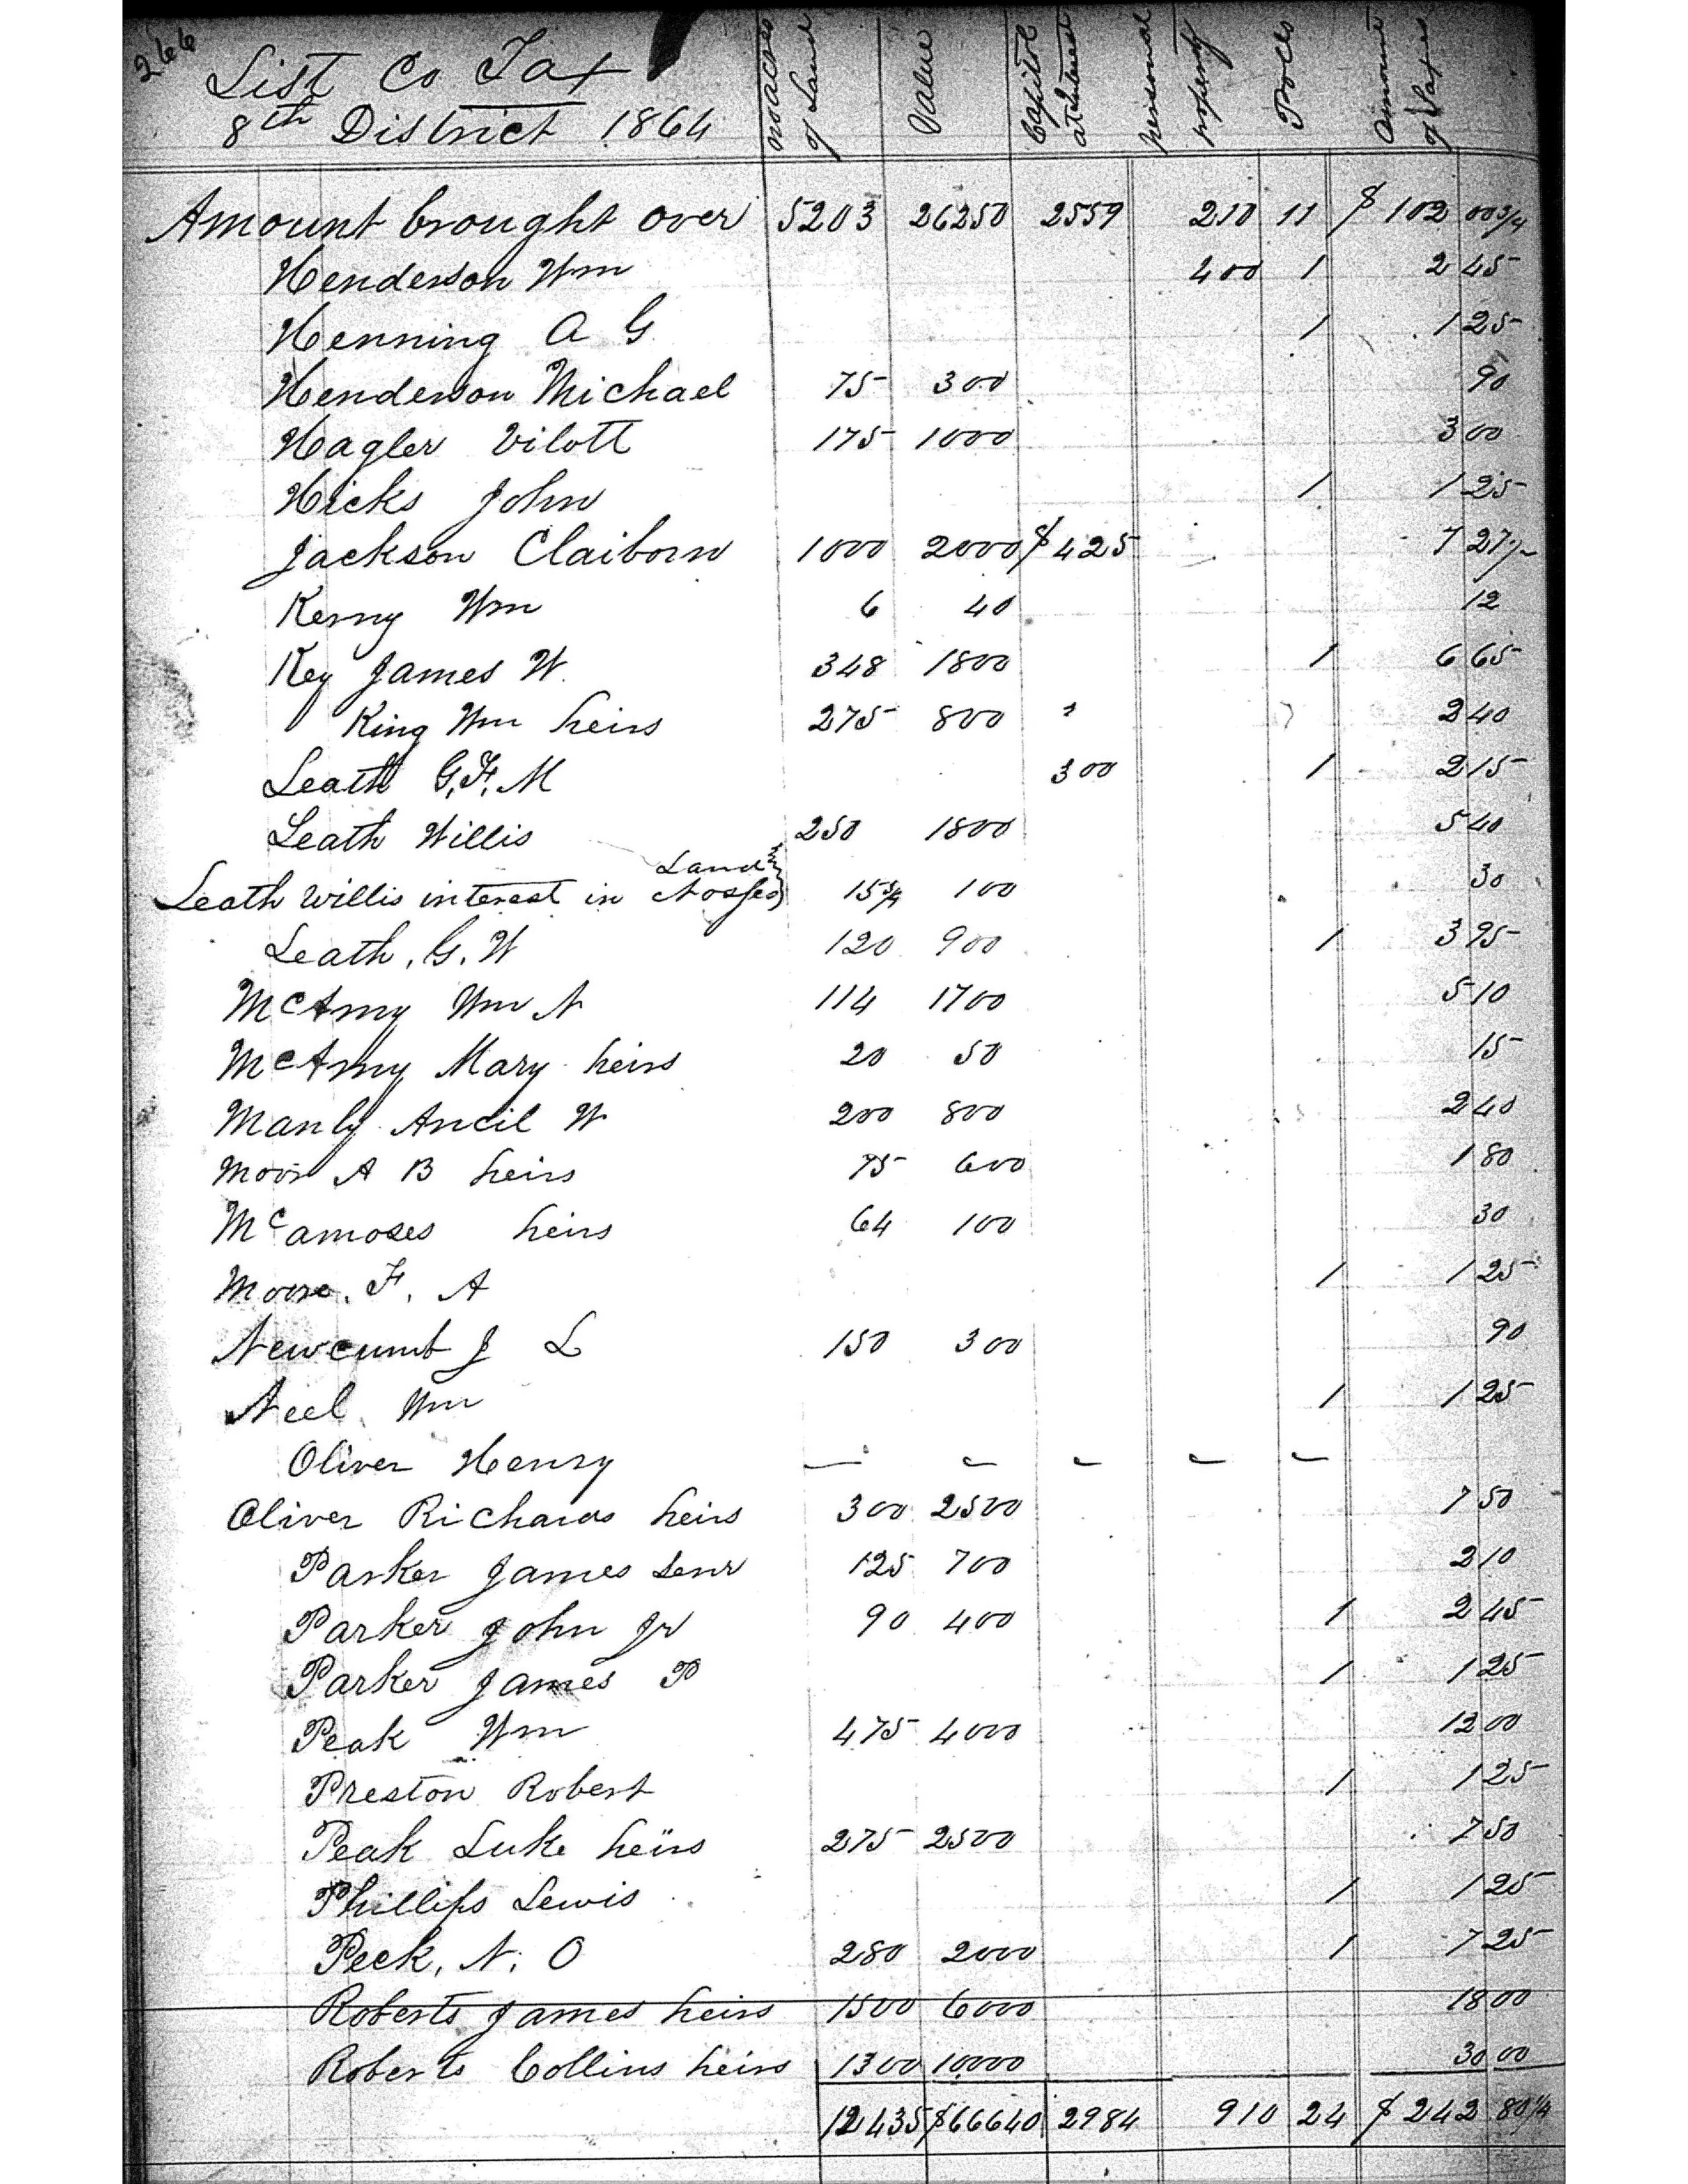 266
List Co Tax
8th District 1864
no acres of Land
Value
Capitol at Interest
personal property
Polls
Amount of Taxes
Amount brought over 5203 26250 2559 210 11 $ 102 00 3/4
Henderson Wm 400 1 2 45
Henning A G 1 1 25
Henderson Michael 75 300 90
Hagler Vilott 175 1000 3 00
Hicks John 1 1 25
Jackson Claiborn 1000 2000 $425 7 27 1/2
Kerny Wm 6 40 12
Key James W. 348 1800 1 6 65
King Wm heirs 275 800 2 40
Leath G. F. M 300 1 2 15
Leath Willis 250 1800 5 40
Land
Leath Willis interest in 15 3/4 100 30
Leath, G. W 120 900 1 3 95
McAmy Wm N 114 1700 5 10
McAmy Mary heirs 20 50 15
Manly Ancil W 200 800 2 40
Moor A B heirs 75 600 1 80
Mcamoses heirs 64 100 30
Moore. F. A 1 1 25
Newcumb J L 150 300 90
Neel Wm 1 1 25
Oliver Henry — – – – –
Oliver Richards heirs 300 2500 7 50
Parker James Senr 125 700 2 10
Parker John Jr 90 400 1 2 45
Parker James P 1 1 25
Peak Wm 475 4000 12 00
Preston Robert 1 1 25
Peak Luke heirs 275 2500 7 50
Phillips Lewis 1 1 25
Peck, N. O 280 2000 1 7 25
Roberts James heirs 1500 6000 18 00
Roberts Collins heirs 1300 10000 30 00
12435 $66640 2984 910 24 $ 242 80 1/4